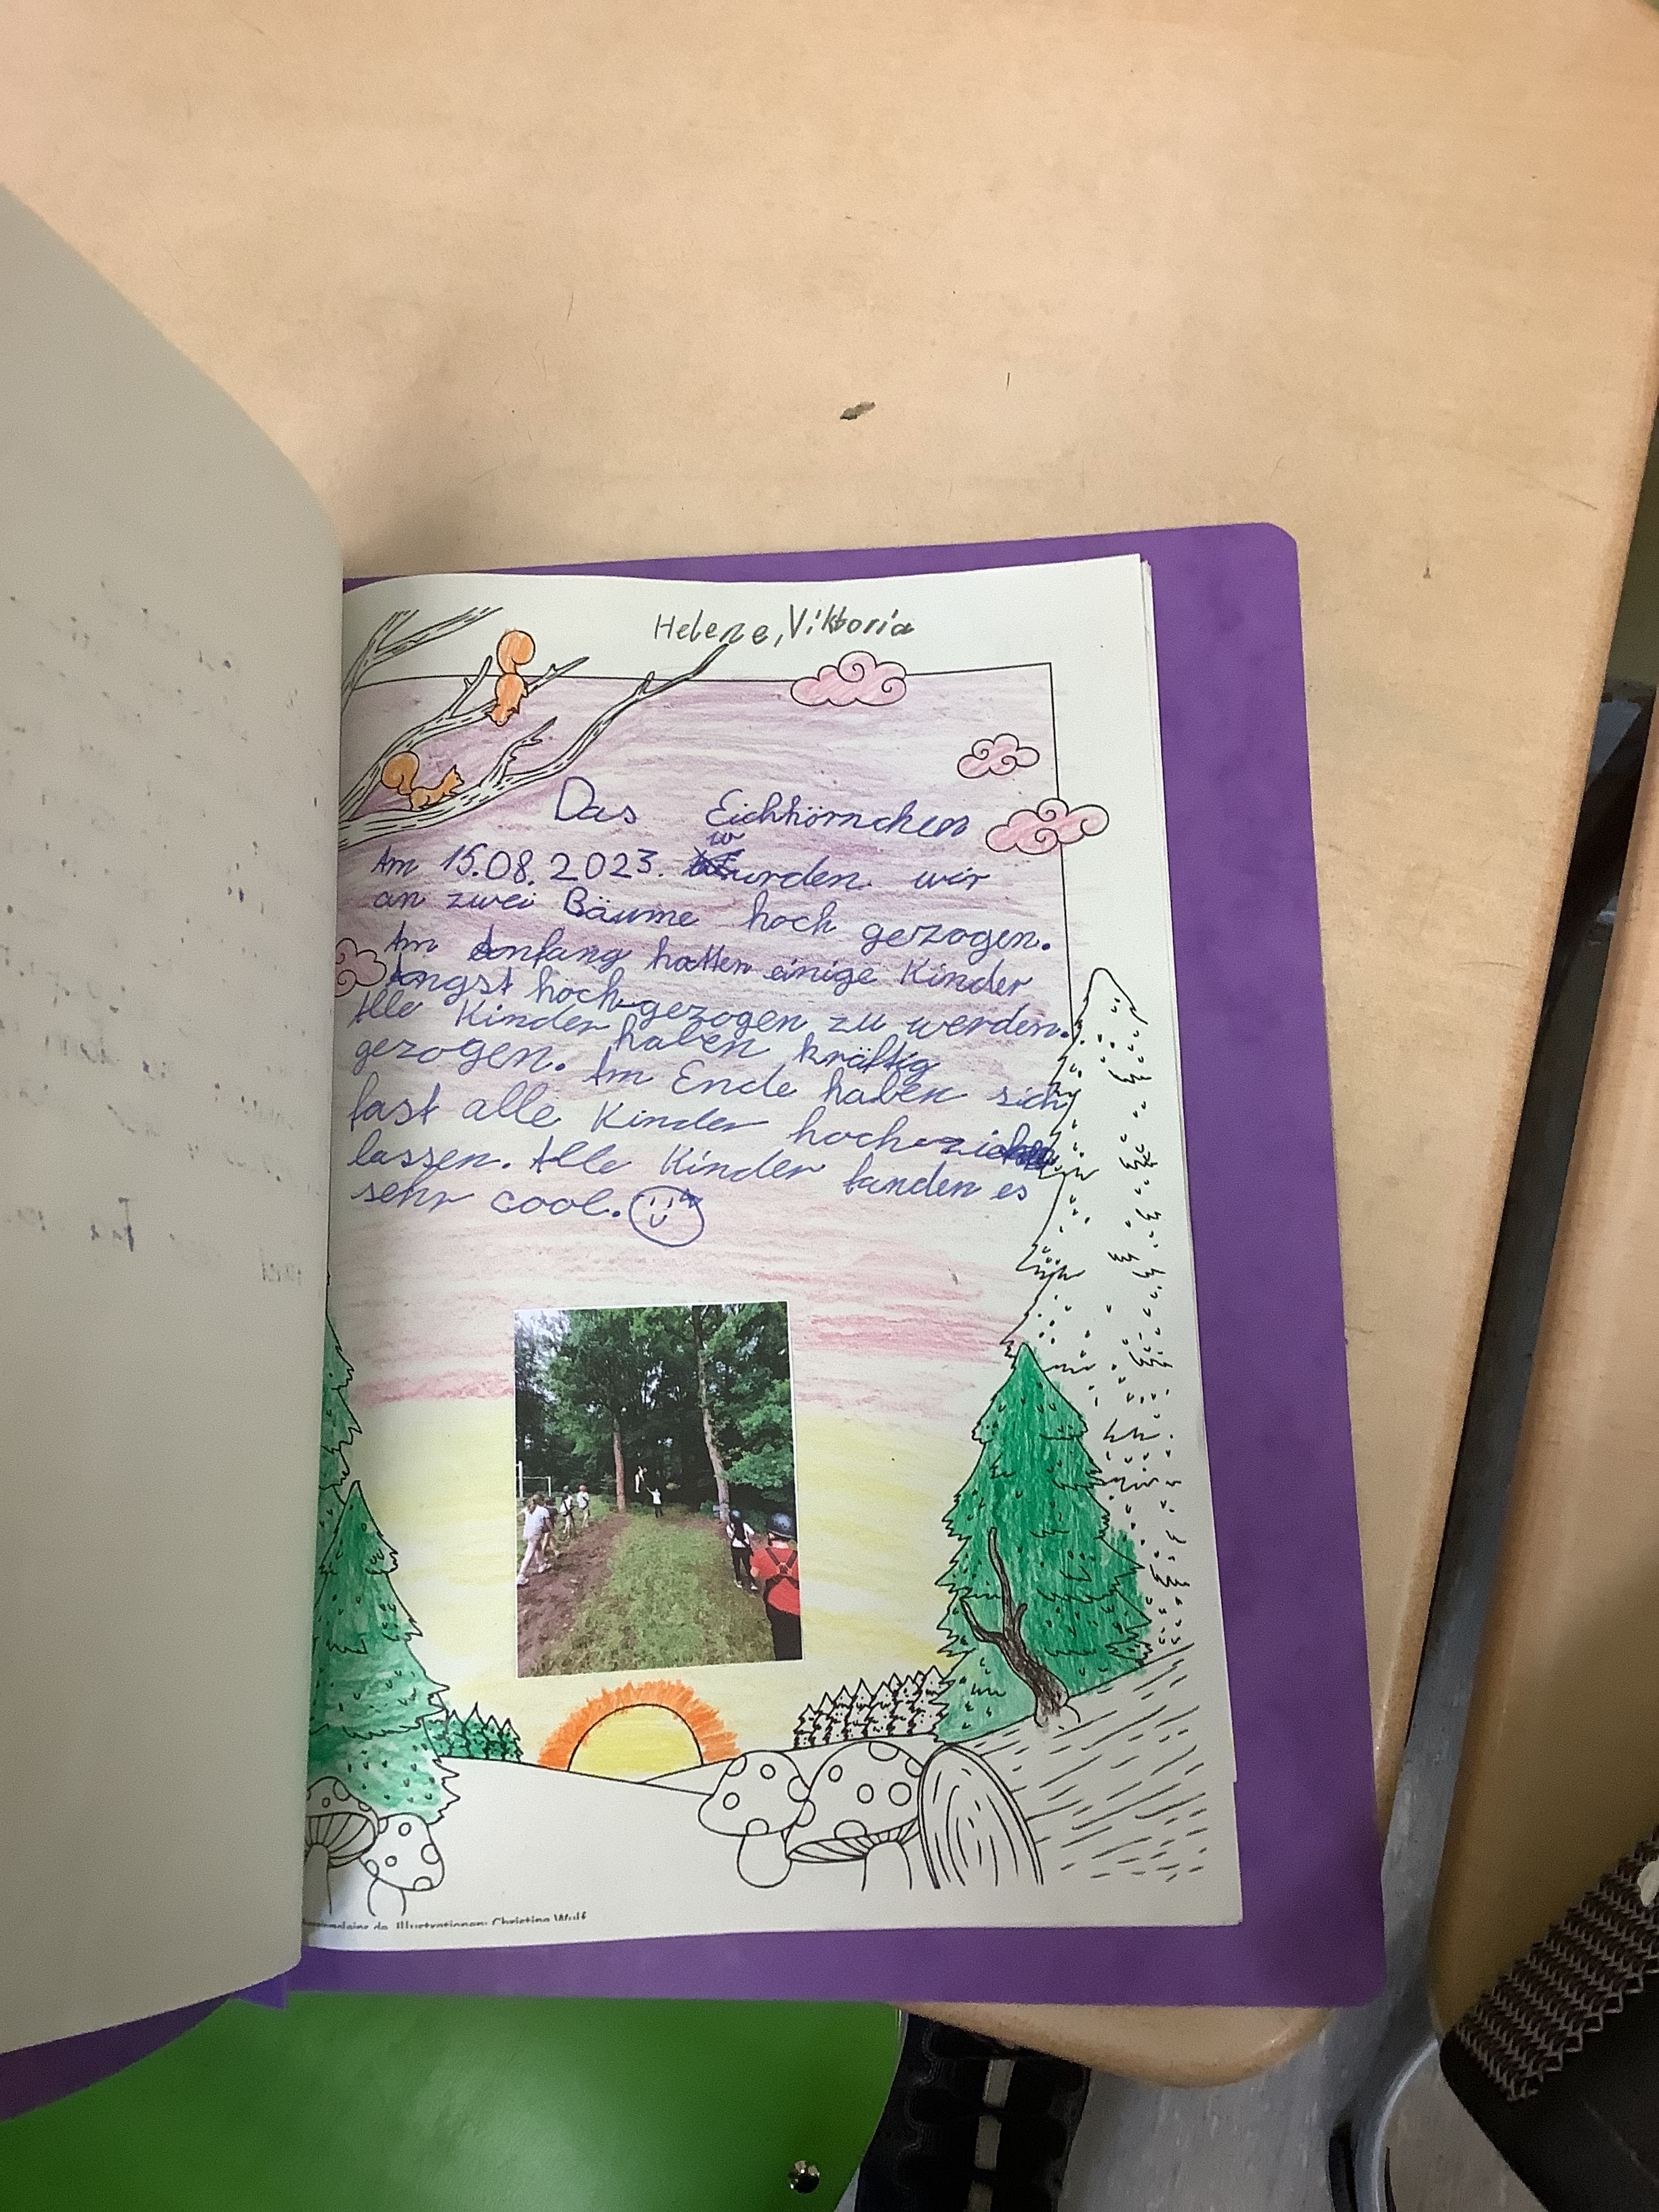 Helene, Viktoria
Das Eichhörnchen
Am 15.08.2023. wurden wir
an zwei Bäume hoch gezogen.
Am Anfang hatten einige Kinder
Angst hoch gezogen zu werden.
Alle Kinder haben kräftig
gezogen. Am Ende haben sich
fast alle Kinder hochziehen
lassen. Alle Kinder fanden es
sehr cool.
de Illustrationen: Christina Wulf